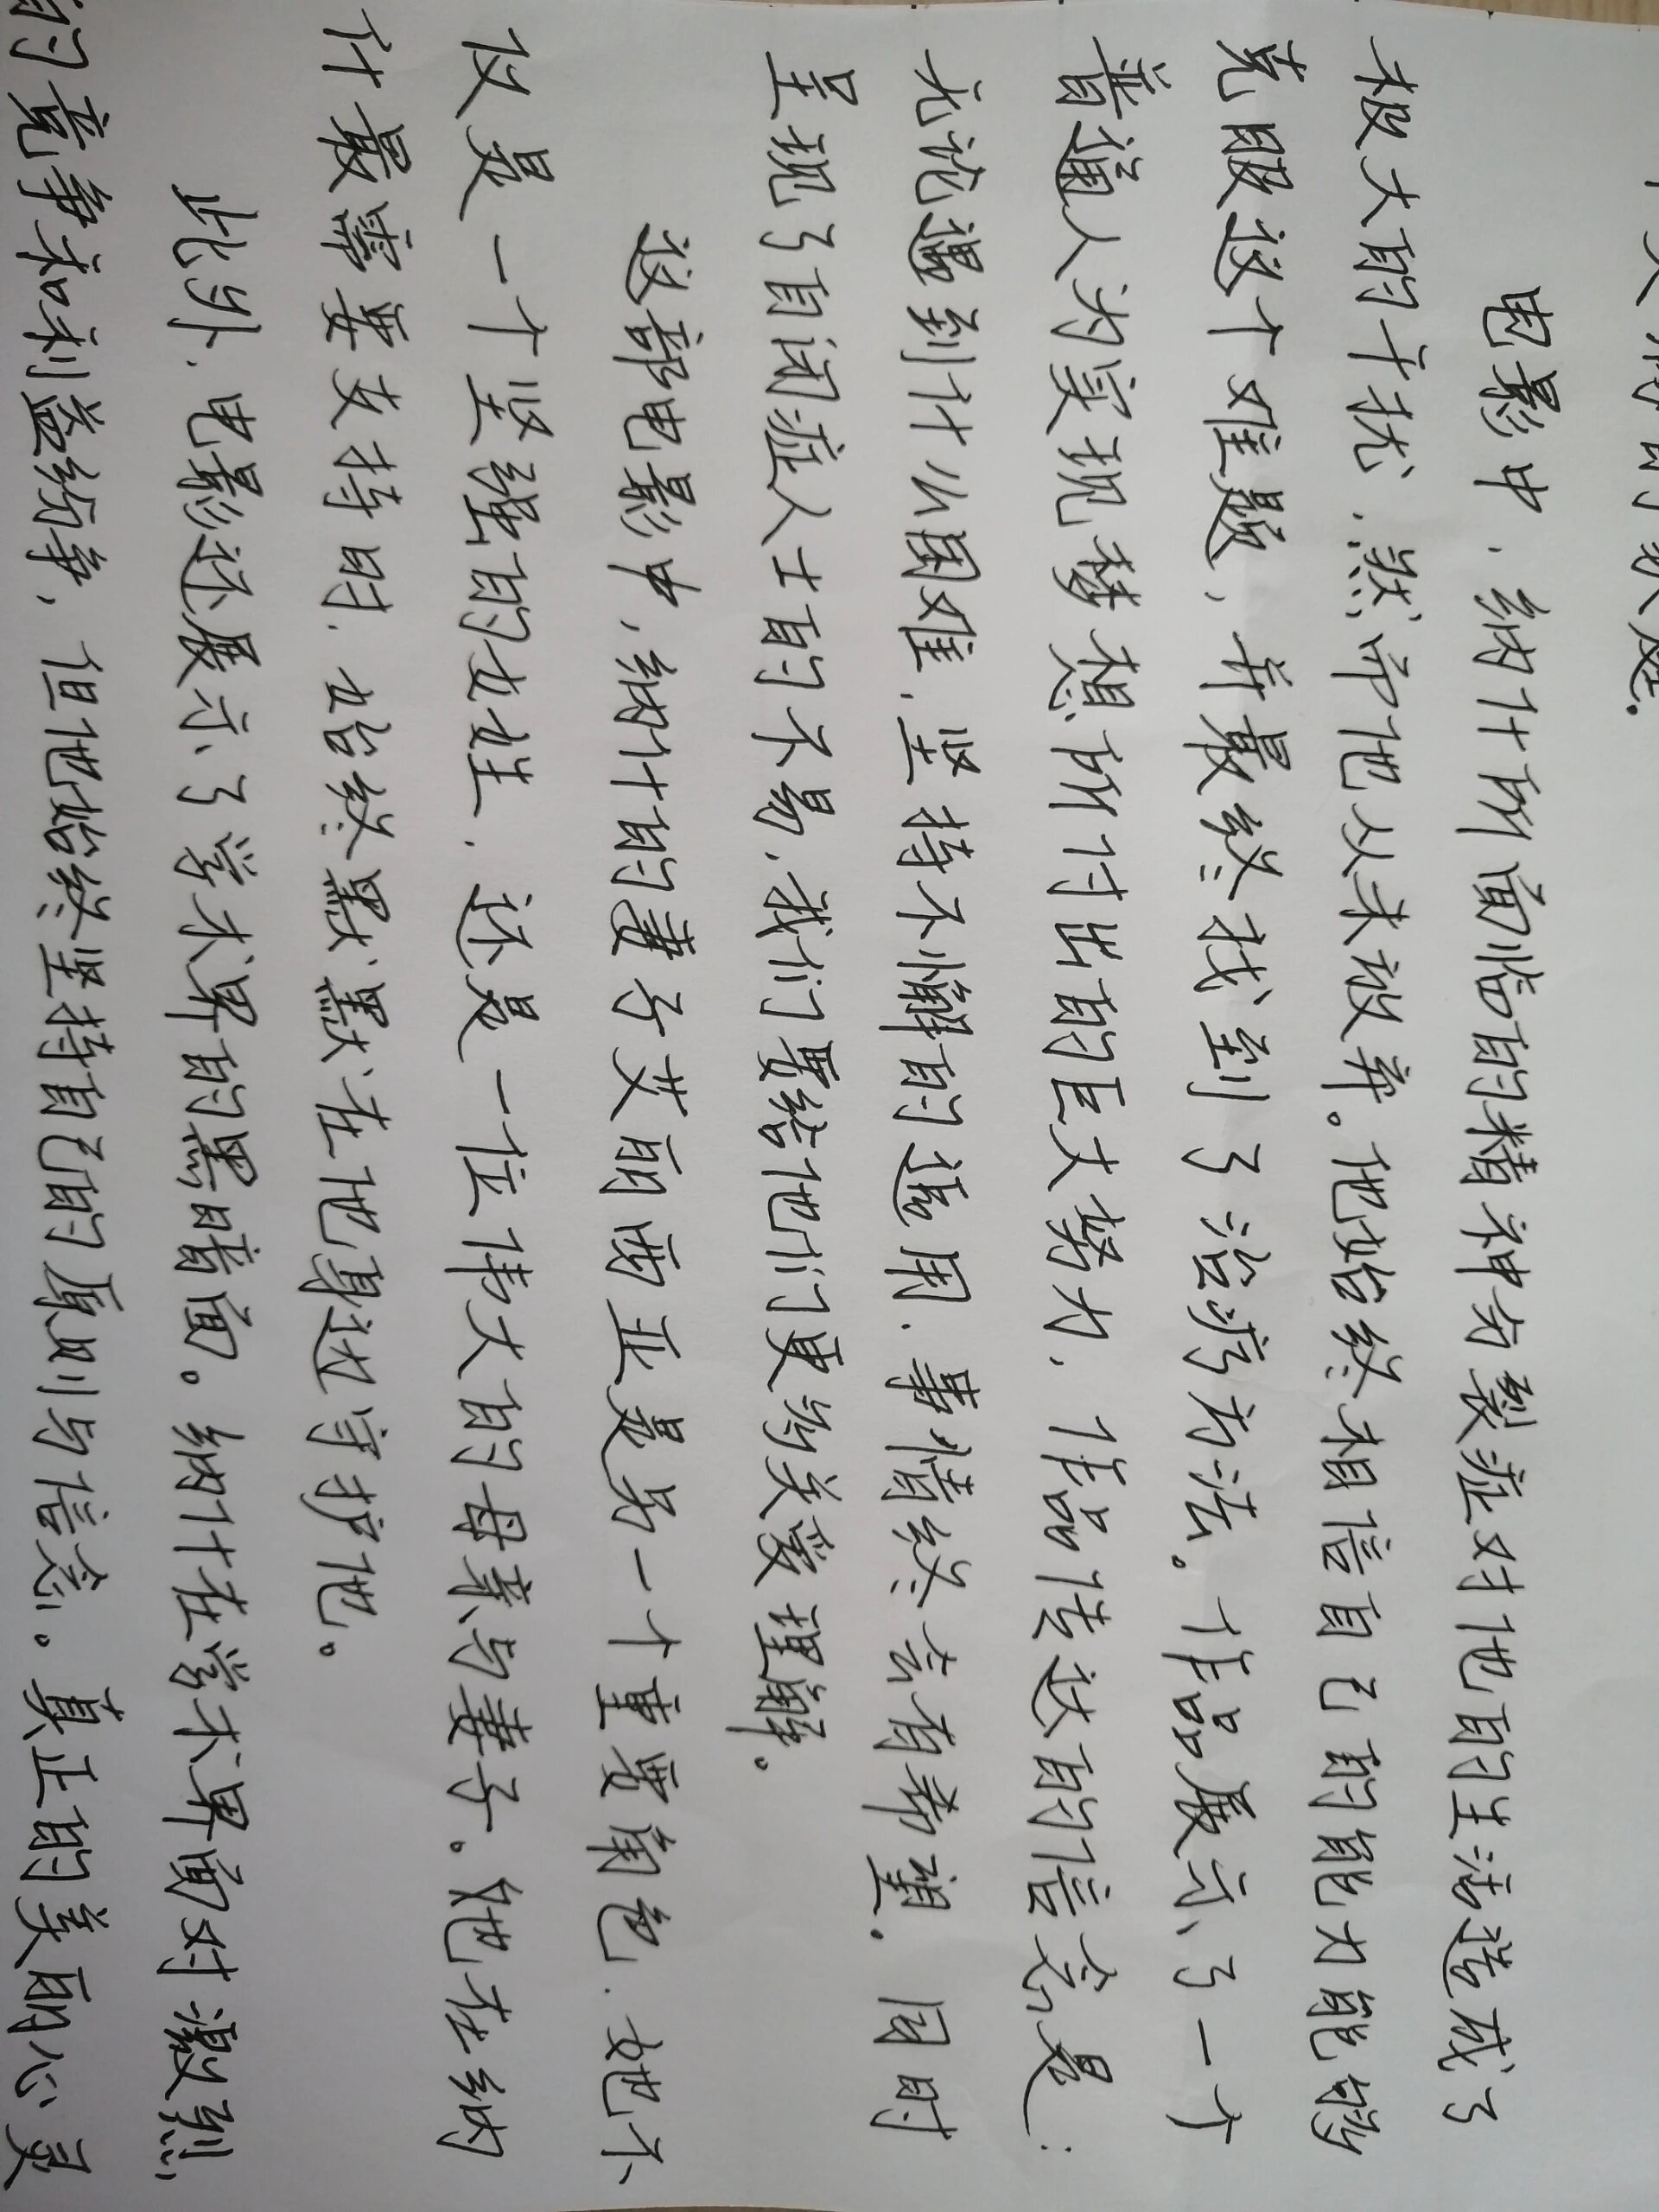 电影中，纳什所面临的精神分裂症对他的生活造成了
极大的干扰，然而他从未放弃。他始终相信自己的能力能够
克服这个难题，并最终找到了治疗方法。作品展示了一个
普通人为实现梦想所付出的巨大努力，作品传达的信念是：
无论遇到什么困难，坚持不懈的适用，事情终会有希望。同时
呈现了自闭症人士的不易，我们要给他们更多关爱理解。
这部电影中，纳什的妻子艾丽西亚是另一个重要角色，她不
仅是一个坚强的女性，还是一位伟大的母亲与妻子。他在纳
什最需要支持时，始终默默在他身边守护他。
此外，电影还展示了学术界的黑暗面。纳什在学术界面对激烈
的竞争和利益纷争，但他始终坚持自己的原则与信念。真正的美丽心灵